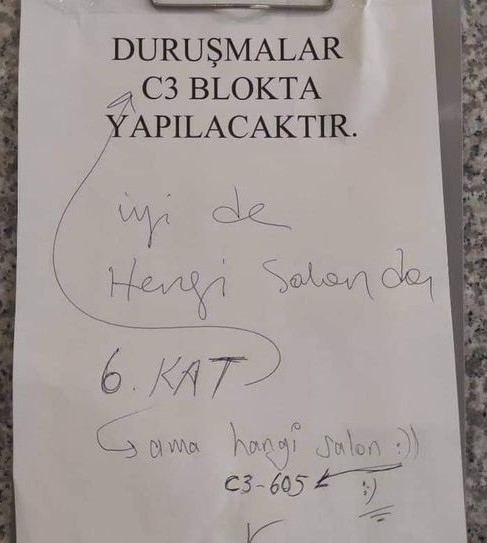 DURUŞMALAR
C3 BLOKTA
YAPILACAKTIR.
iyi de
Hangi Salonda
6. KAT
ama hangi salon :))
C3-605
:)